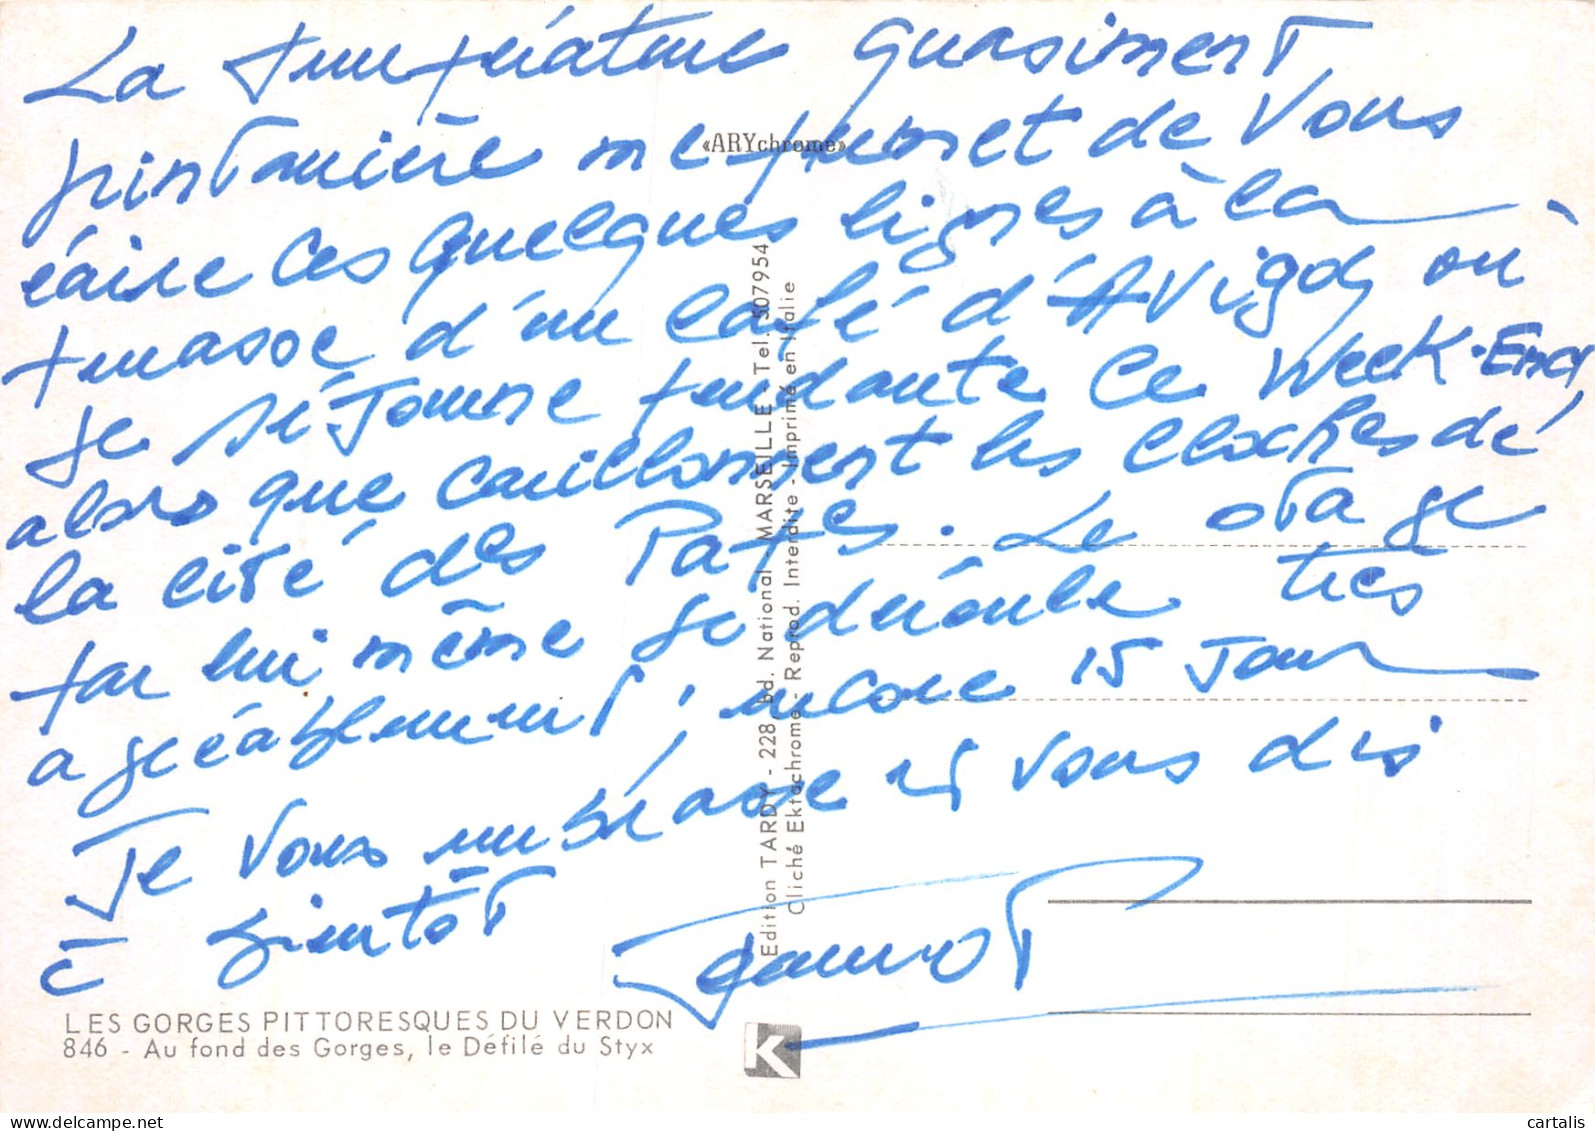 La température quasiment
printanière me permet de vous
écrire ces quelques lignes à la
terrasse d'un café d'Avigd, où
je séjourne pendante ce Week-End,
alors que carillonnent les cloches de
la cité des Papes. Le stage
par lui même se déroule très
agréablement, encore 15 jours
Je vous embrasse et vous dis
à bientôt
«ARYchrome»
Edition TARDY - 228, bd. National MARSEILLE Tel. 507954
Cliché Ektachrome - Reprod. Interdite - Imprimé en Italie
LES GORGES PITTORESQUES DU VERDON
846 - Au fond des Gorges, le Défilé du Styx
K
delcampe.net
cartalis